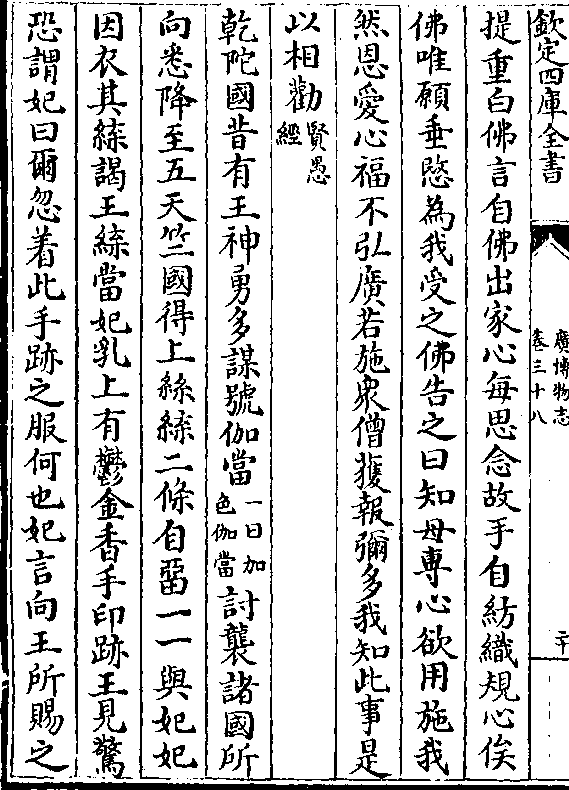 欽定四庫全書
廣博物志
卷三十八
二十
提重白佛言自佛出家心每思念故手自紡織規心俟
佛唯願垂愍為我受之佛告之曰知母專心欲用施我
然恩愛心福不弘廣若施衆僧獲報彌多我知此事是
以相勸賢愚經
乾陀國昔有王神勇多謀號伽當一曰加色伽當討襲諸國所
向悉降至五天竺國得上絲緤二條自留一一與妃妃
因衣其緤謁王緤當妃乳上有鬱金香手印跡王見驚
恐謂妃曰爾忽着此手跡之服何也妃言向王所賜之